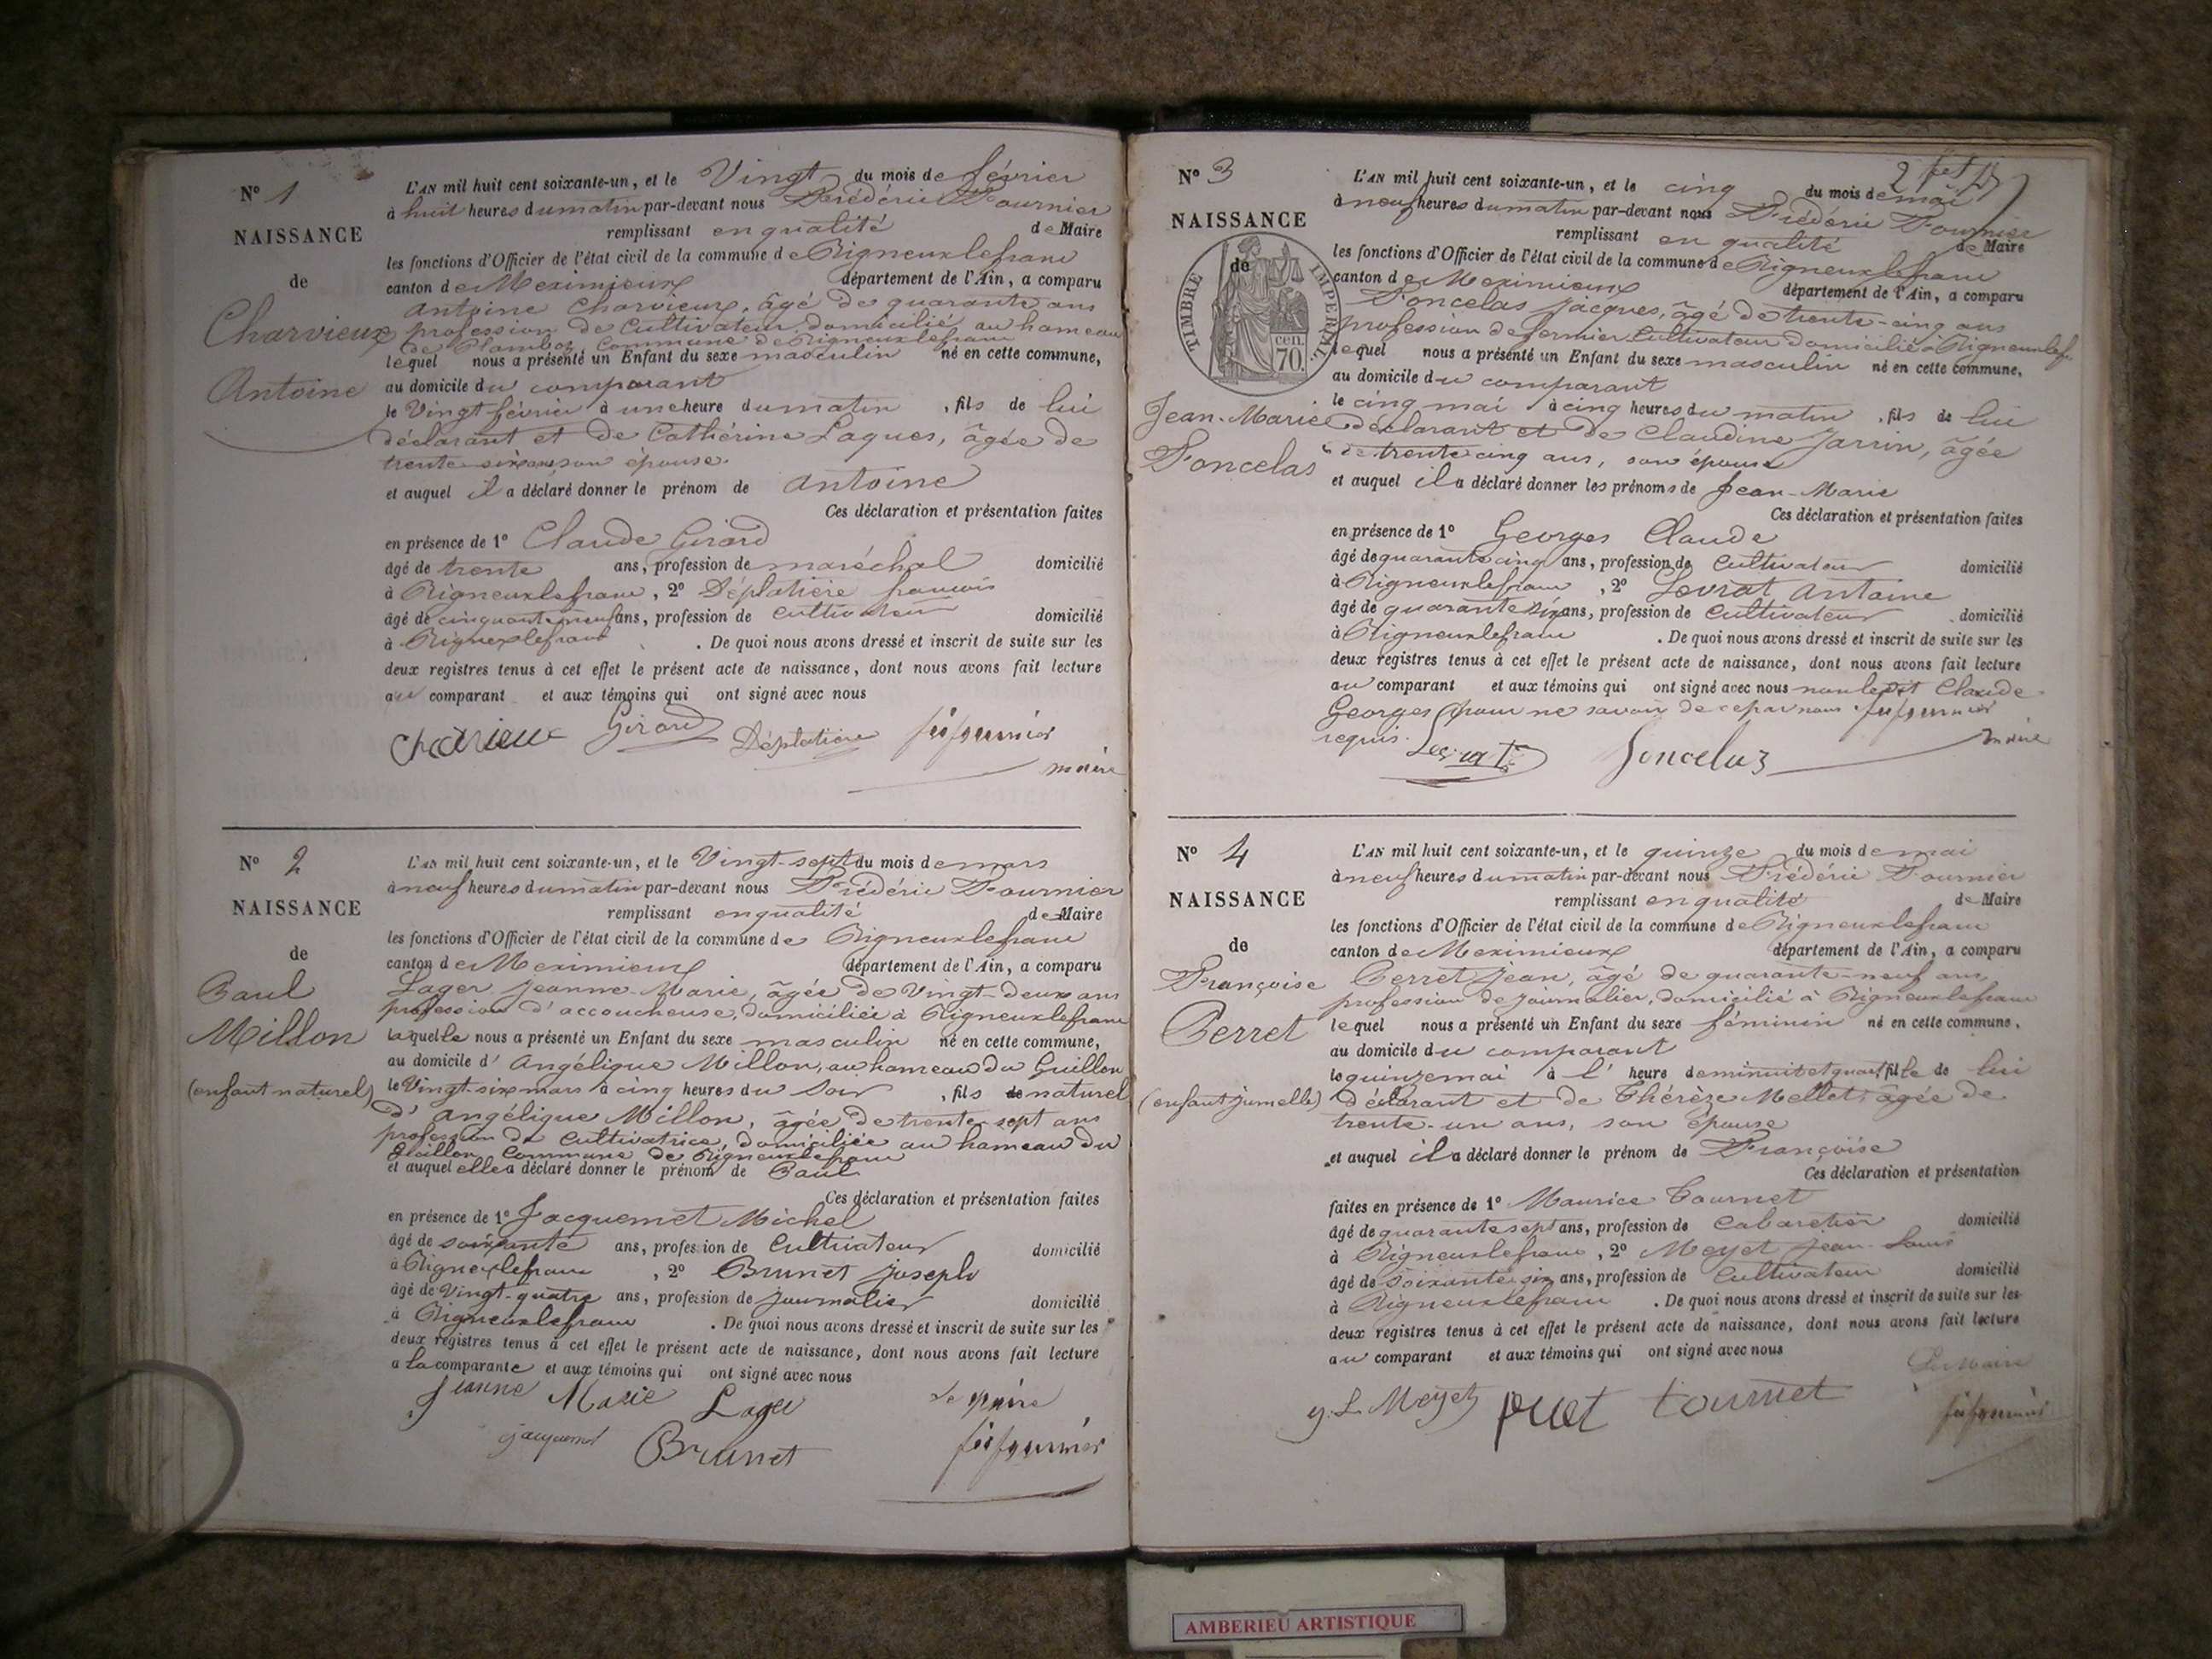 N° 1
NAISSANCE
de
Charvieux
Antoine
L'AN mil huit cent soixante-un, et le Vingt du mois de février
à huit heures du matin par-devant nous Frédéric Fournier
remplissant en qualité de Maire
les fonctions d'Officier de l'état civil de la commune de Rigneuxlefranc
canton de Meximieux département de l'Ain, a comparu
Antoine Charvieux, âgé de quarante ans
profession de Cultivateur, domicilié au hameau
de Commune de Rigneuxlefranc
lequel nous a présenté un Enfant du sexe masculin né en cette commune,
au domicile du comparant
le Vingt février à une heure du matin, fils de lui
déclarant et de Cathérine Laques, âgée de
trente six ans, son épouse.
et auquel il a déclaré donner le prénom de Antoine
Ces déclaration et présentation faites
en présence de 1° Claude Girard
âgé de trente ans, profession de maréchal domicilié
à Rigneuxlefranc, 2° Déplatière francois
âgé de cinquante neuf ans, profession de cultivateur domicilié
à Rignexlefranc. De quoi nous avons dressé et inscrit de suite sur les
deux registres tenus à cet effet le présent acte de naissance, dont nous avons fait lecture
au comparant et aux témoins qui ont signé avec nous
Charvieux Girard Déplatière fis fournier
maire
N° 2
NAISSANCE
de
Paul
Millon
(enfant naturel)
L'AN mil huit cent soixante-un, et le Vingt-sept du mois de mars
à neuf heures du matin par-devant nous Frédéric Fournier
remplissant en qualité de Maire
les fonctions d'Officier de l'état civil de la commune de Rigneuxlefranc
canton de Meximieux département de l'Ain, a comparu
Lager Jeanne-Marie, âgée de Vingt-deux ans
profession d'accoucheuse, domiciliée à Rigneuxlefranc
laquelle nous a présenté un Enfant du sexe masculin né en cette commune,
au domicile d'Angélique Millon, au hameau du Guillon
le Vingt-six mars à cinq heures du soir, fils de naturel
d'Angélique Millon, âgée de trente-sept ans
profession de Cultivatrice, domiciliée au hameau du
Guillon, Commune de Rigneuxlefranc
et auquel elle a déclaré donner le prénom de Paul
Ces déclaration et présentation faites
en présence de 1° Jacquemet Michel
âgé de soixante ans, profession de Cultivateur domicilié
à Rignexlefranc, 2° Brunet Joseph
âgé de Vingt-quatre ans, profession de journalier domicilié
à Rigneuxlefranc. De quoi nous avons dressé et inscrit de suite sur les
deux registres tenus à cet effet le présent acte de naissance, dont nous avons fait lecture
a la comparante et aux témoins qui ont signé avec nous
Jeanne Marie Lager Le maire
jacquemet Brunet fis fournier
N° 3
NAISSANCE
de
TIMBRE IMPERIAL
70 cen.
Jean-Marie
Foncelas
L'AN mil huit cent soixante-un, et le cinq du mois de mai
à neuf heures du matin par-devant nous Frédéric Fournier
remplissant en qualité de Maire
les fonctions d'Officier de l'état civil de la commune de Rigneuxlefranc
canton de Meximieux département de l'Ain, a comparu
Foncelas Jacques, âgé de trente-cinq ans
profession de fermier Cultivateur domicilié à Rigneuxlef.
lequel nous a présenté un Enfant du sexe masculin né en cette commune,
au domicile du comparant
le cinq mai à cinq heures du matin, fils de lui
déclarant et de Claudine Jarrin, âgée
de trente cinq ans, son épouse
et auquel il a déclaré donner les prénoms de Jean-Marie
Ces déclaration et présentation faites
en présence de 1° Georges Claude
âgé de quarante cinq ans, profession de Cultivateur domicilié
à Rigneuxlefranc, 2° Levrat Antoine
âgé de quarante six ans, profession de Cultivateur domicilié
à Rigneuxlefranc. De quoi nous avons dressé et inscrit de suite sur les
deux registres tenus à cet effet le présent acte de naissance, dont nous avons fait lecture
au comparant et aux témoins qui ont signé avec nous non ledit Claude
Georges pour ne savoir de ce par nous fis fournier
requis. Levrat foncelas maire
N° 4
NAISSANCE
de
Françoise
Perret
(enfant jumelle)
L'AN mil huit cent soixante-un, et le quinze du mois de mai
à neuf heures du matin par-devant nous Frédéric Fournier
remplissant en qualité de Maire
les fonctions d'Officier de l'état civil de la commune de Rigneuxlefranc
canton de Meximieux département de l'Ain, a comparu
Perret Jean, âgé de quarante-neuf ans,
profession de journalier, domicilié à Rigneuxlefranc
lequel nous a présenté un Enfant du sexe féminin né en cette commune,
au domicile du comparant
le quinze mai à l'heure de minuit et quart, fille de lui
déclarant et de Thérèze Mellet, âgée de
trente-un ans, son épouse
et auquel il a déclaré donner le prénom de Françoise
Ces déclaration et présentation
faites en présence de 1° Maurice Tournet
âgé de quarante sept ans, profession de Cabaretier domicilié
à Rigneuxlefranc, 2° Meyet Jean-Louis
âgé de soixante six ans, profession de Cultivateur domicilié
à Rigneuxlefranc. De quoi nous avons dressé et inscrit de suite sur les
deux registres tenus à cet effet le présent acte de naissance, dont nous avons fait lecture
au comparant et aux témoins qui ont signé avec nous
Le Maire
y. L Meyet tournet fis fournier
AMBERIEU ARTISTIQUE